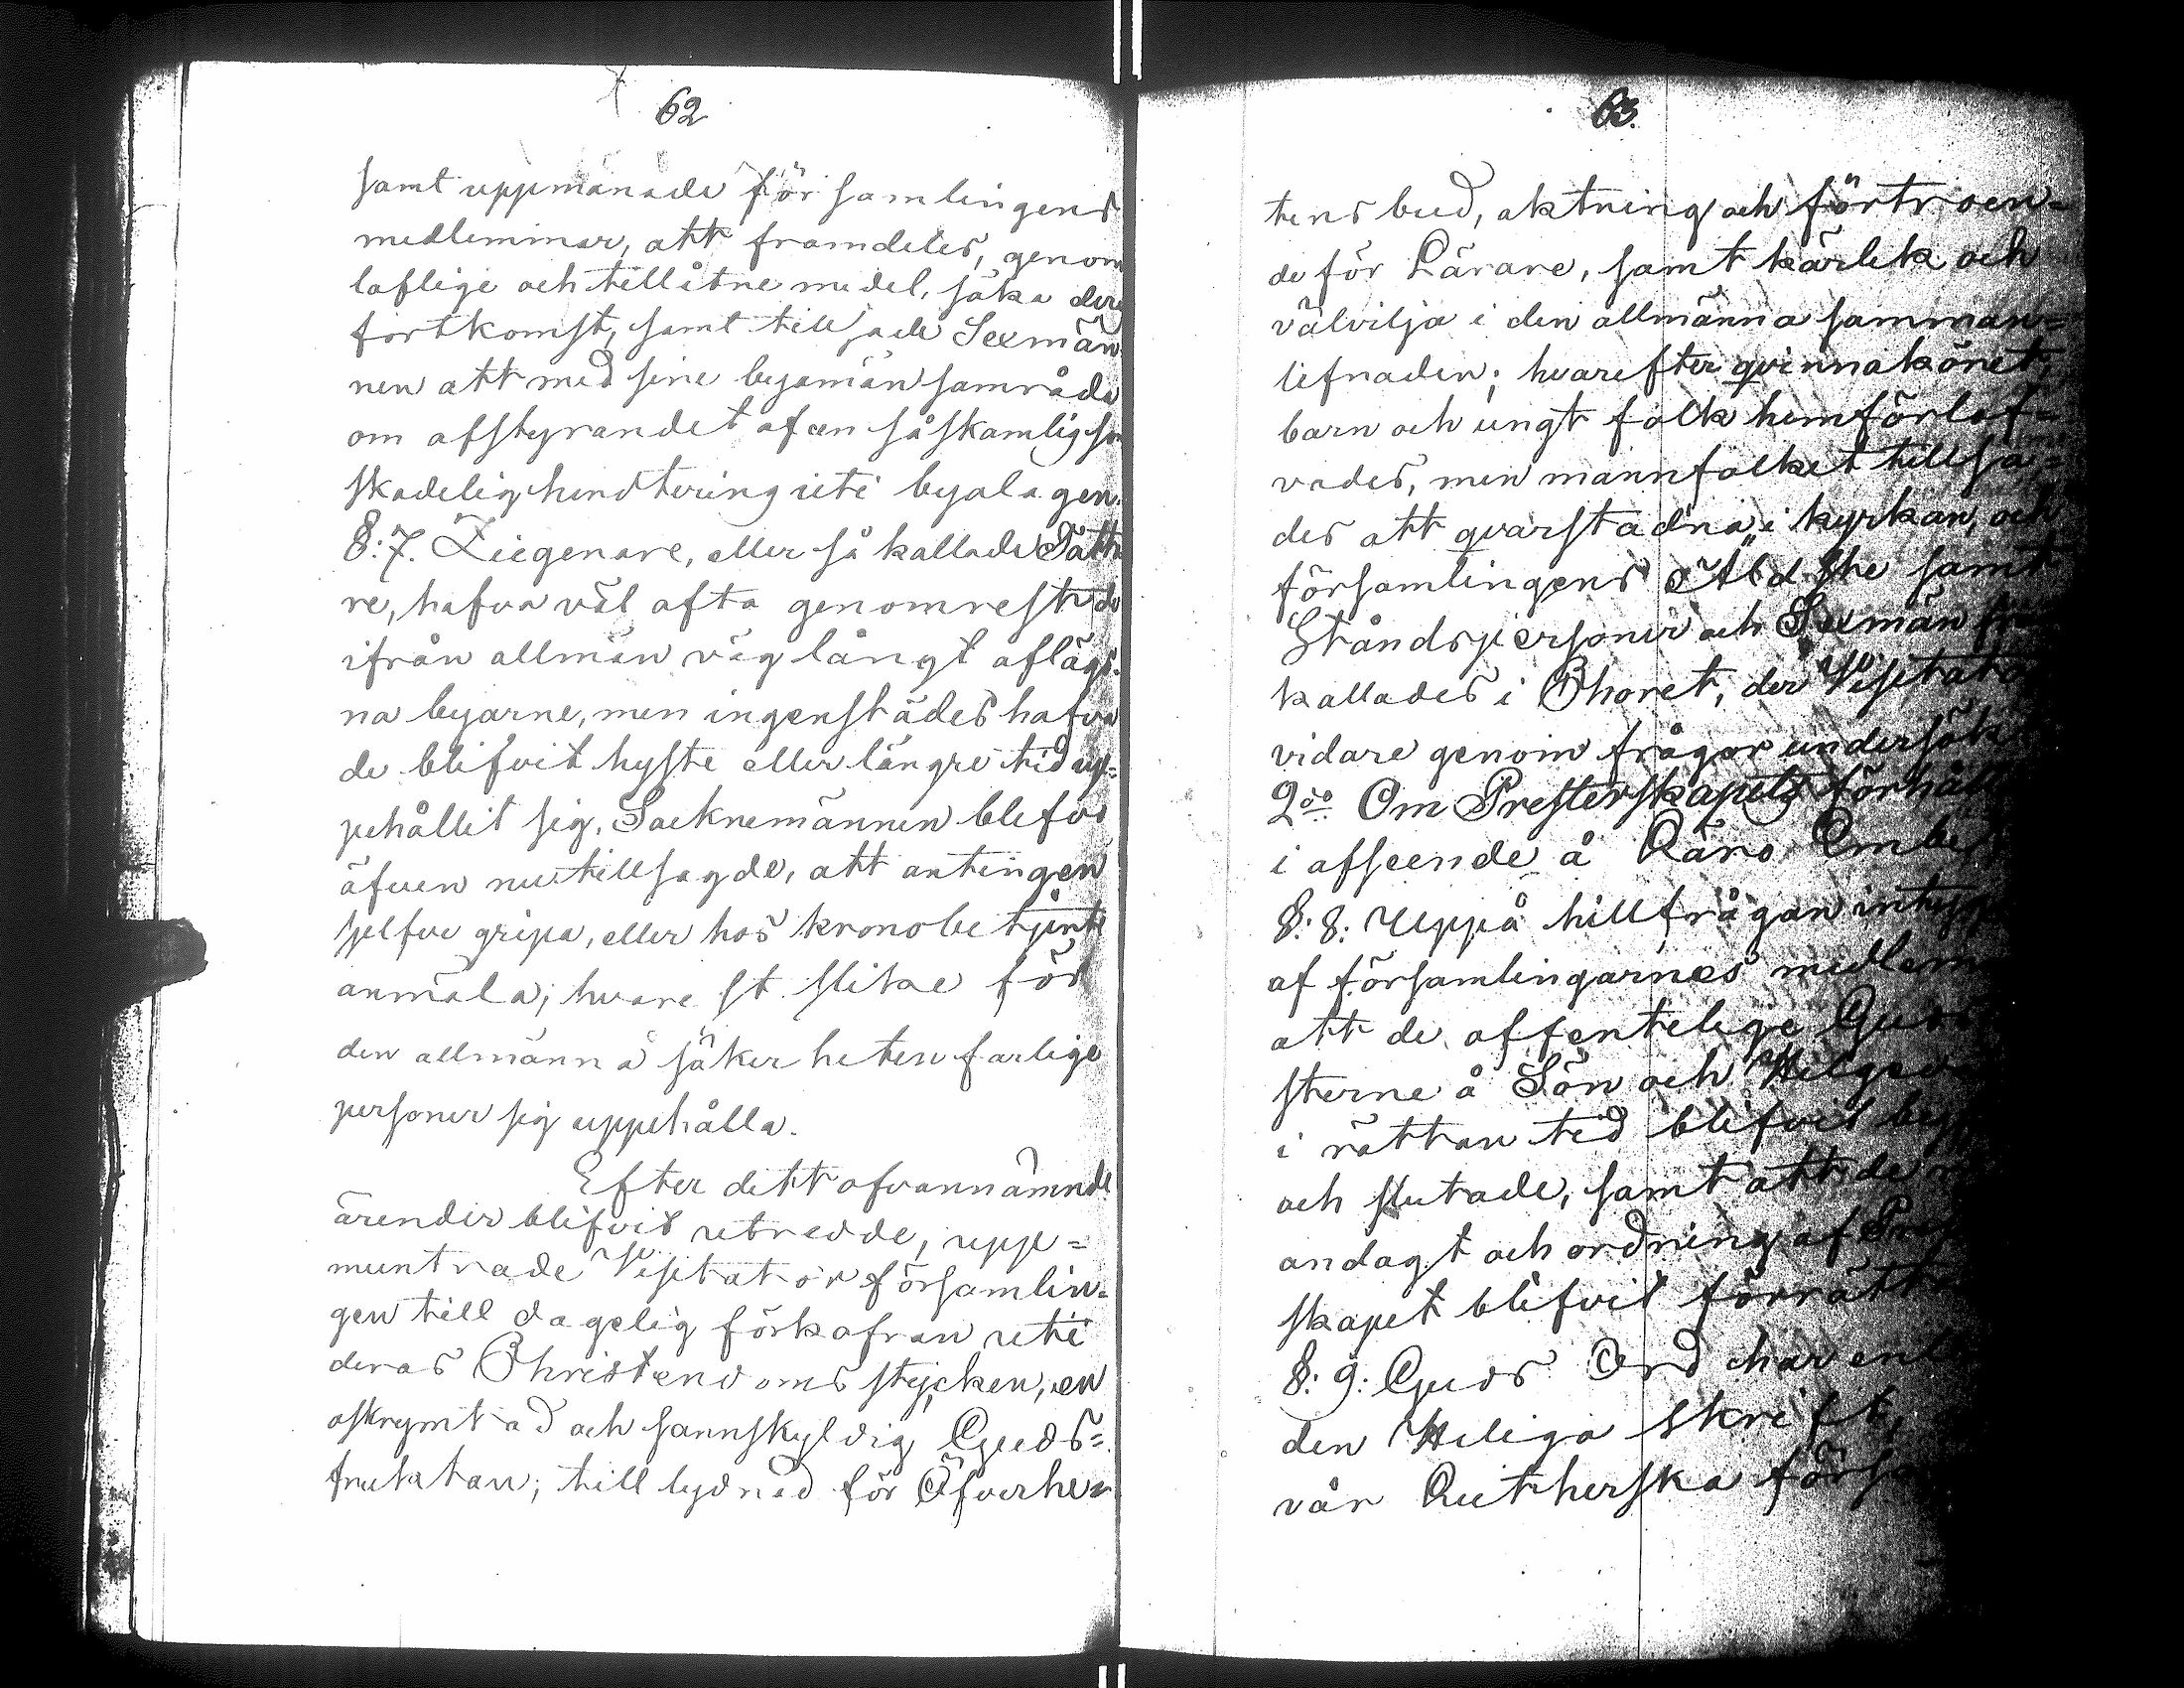 62
samt uppmanade församlingens
medlemmar, att framdeles, genom
loflige och tillåtne medel, söka dere
fortkomst, samt till sade Sexmän
nen att med sine byamän samråda
om afstyrandet af en så skamlig som
skadelig handtering uti byalagen.
§: 7. Ziegenare, eller så kallade Tatta
re, hafva väl ofta genomrest de
ifrån allmän väg långt afläg=
na byarne, men ingenstädes hafva
de blifvit hyste eller längre tid up=
pehållit sig. Socknemännen blefvo
äfven nu tillsagde, att antingen
sjelfve gripa, eller hos kronobetjente
anmäla; hvare st slike för
den allmänna säkerheten farlige
personer sig uppehålla.
Efter dett ofvannämnde
ärender blifvit utredde, upp=
muntrade Visitator församlin=
gen till dagelig förkofran uti
deras Christendoms stycken, en
oskrymtad och sannskyldig Guds=
fruktan; till lydnad för Öfverhe
63.
tens bud, aktning och förtroen=
de för Lärare, samt kärlek och
välvilja i den allmänna samman=
lefnaden; hvarefter qvinnakönet,
barn och ungt folk hemförlof=
vades, men mannfolket tillsa=
des att qvarstadna i kyrkan, och
församlingens Äldste samt
Ståndspersoner och Sexmän fram
kallades i Choret, der Visitator
vidare genom frågor undersökte
2do Om Presterskapets förhåll
i afseende å Läro Embe
§: 8: Uppå tillfrågan intyg
af församlingarnes medlem
att de offentelige Guds
sterne å Sön och Helged
i rättan tid blifvit beg
och slutade, samt att de
andagt och ordning af Pre
skapet blifvit förrätt
§: 9: Guds Ord har enl
den Heliga skrift,
vår Lutherska förs